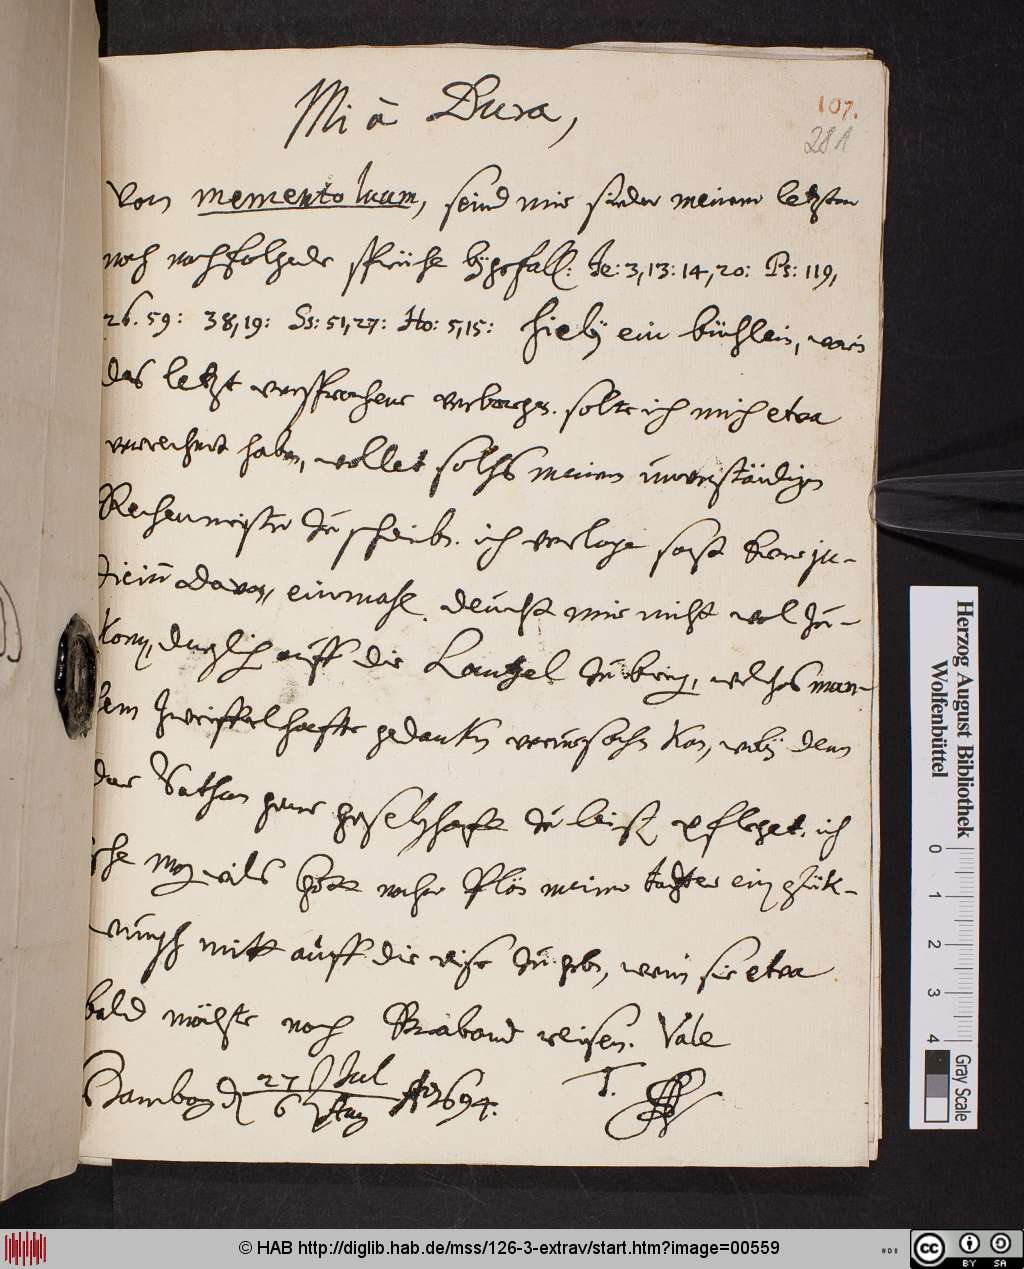 Mi à Dura,
107.
281
Von memento tuum, seind mir sieder meinem letzten
noch nachfolgende sprüche bÿgefall: Je: 3, 13: 14, 20: Ps: 119,
26. 59: 38, 19: Ss: 51, 27: Ho: 5, 15: hiebÿ ein büchlein,
das letzt versprochene verborgen. solte ich mich etwa
verrechnet haben, wollet solchs meinem unverständigen
Rechenmeister zu schreiben. ich verlange fast
davon, einmahl deucht mir nicht wol zu-
auff die Cantzel zu bring, welches man-
chem zweiffelhaffte gedanken verursachen kan, wobÿ dem
der Sathan gerne geselschafft zu leisten pfleget. ich
Gott meiner tochter ein glük-
wunsch mitt auff die reise zu geben, wenn sie etwa
bald möchte nach Braband reisen. Vale
Hamborg d 27 Jul / 6 Aug Aº 1694.
T.
Herzog August Bibliothek
Wolfenbüttel
0 1 2 3 4
Gray Scale
© HAB http://diglib.hab.de/mss/126-3-extrav/start.htm?image=00559
cc BY SA